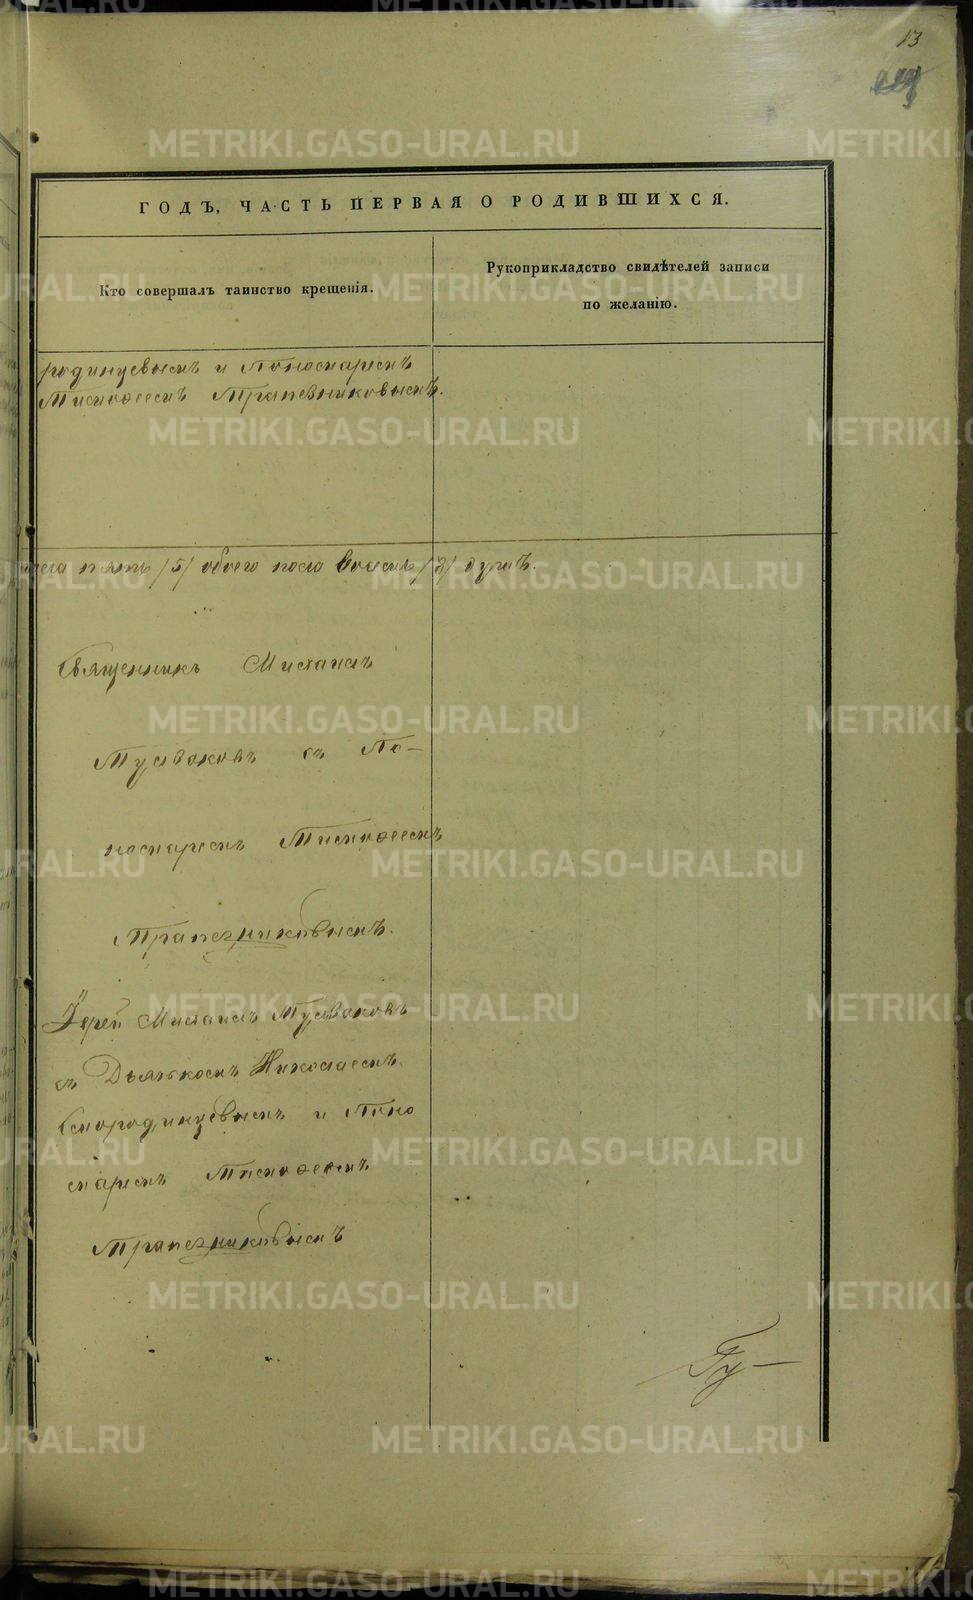 13
ГОДЪ, ЧАСТЬ ПЕРВАЯ О РОДИВШИХСЯ.
Кто совершалъ таинство крещенія.
Рукоприкладство свидѣтелей записи
по желанію.
родинцевымъ и Пономаремъ
Тимоѳеемъ Трапезниковымъ.
пола пять /5/ обоего пола восемь /8/ душъ.
Священникъ Михаилъ
съ По-
номаремъ Тимоѳеемъ
Трапезниковымъ.
Іерей Михаилъ
съ Дьячкомъ Николаемъ
Смородинцевымъ и Поно
маремъ Тимоѳеемъ
Трапезниковымъ
Гу-
METRIKI.GASO-URAL.RU